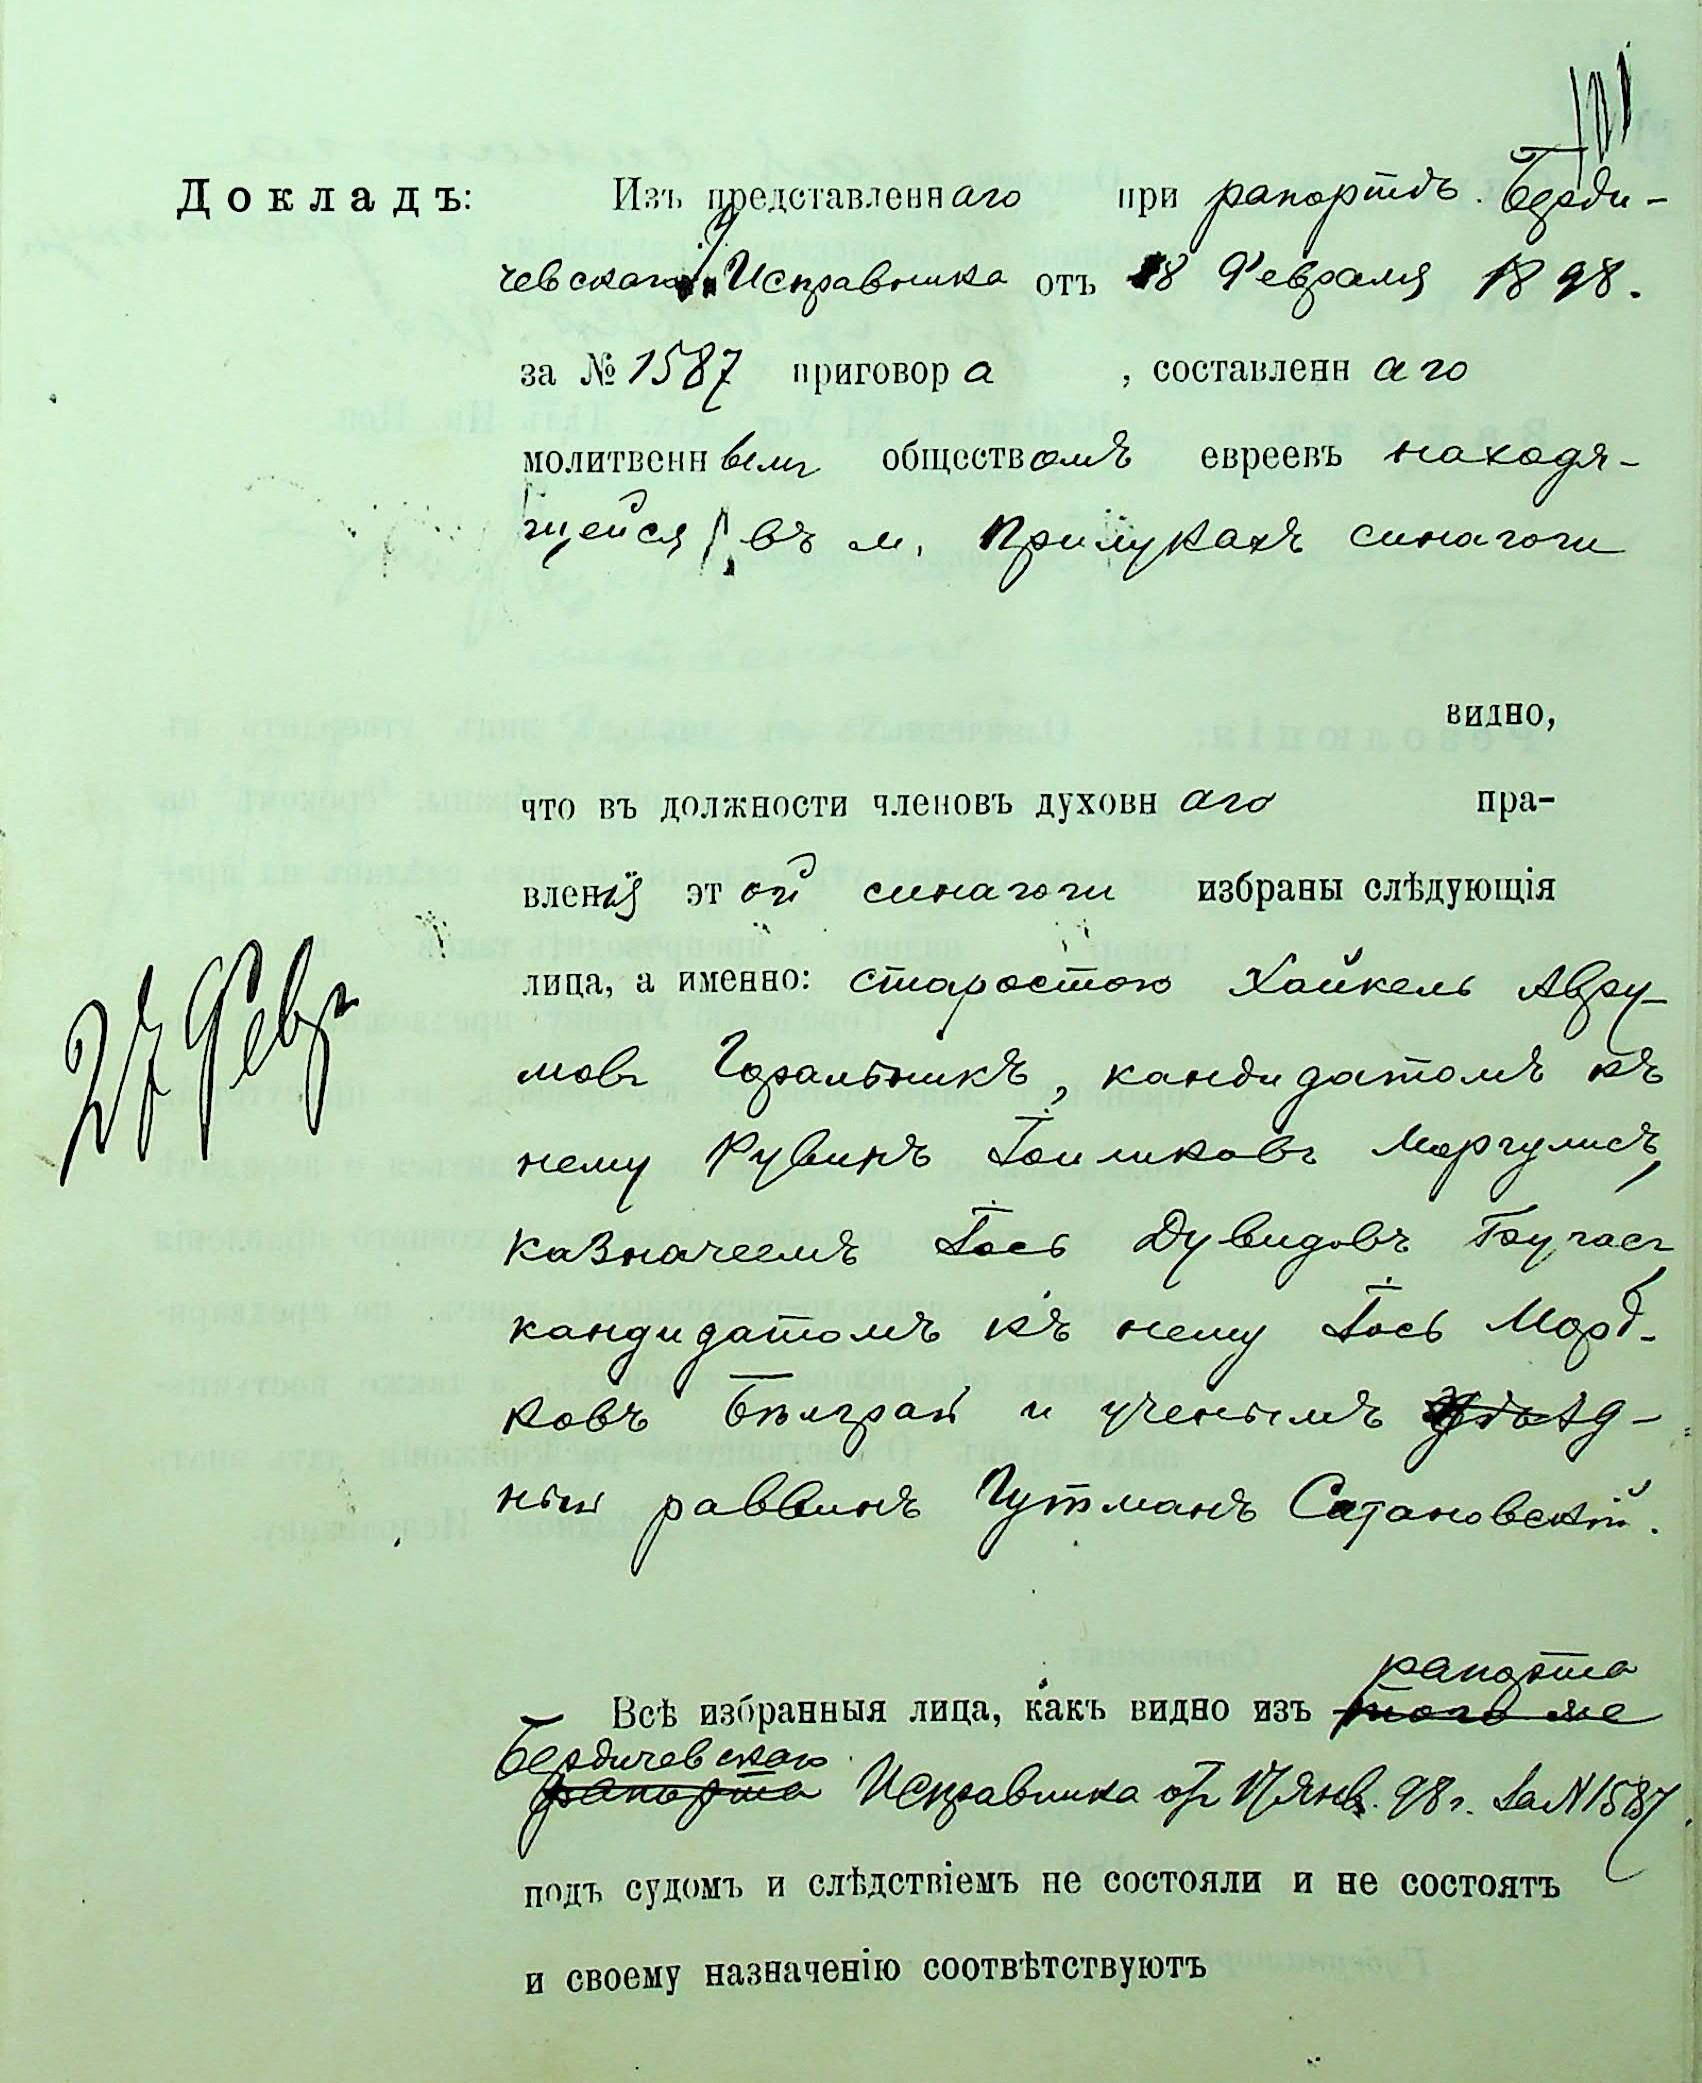 Докладъ: Изъ представленнаго при рапортѣ Берди-
чевскаго Исправника отъ 18 Февраля 1898.
за № 1587 приговора, составленнаго
молитвеннымъ обществомъ евреевъ находя-
щейся въ м. Прилукахъ синагоги
видно,
что въ должности членовъ духовнаго пра-
вленія этой синагоги избраны слѣдующія
лица, а именно: старостою Хайкель Авру-
мовъ Горальникъ, кандидатомъ къ
27 Февр
нему Рувинъ Маргулисъ,
казначеемъ Іось Дувидовъ
кандидатомъ къ нему Іось Морд-
ковъ и ученымъ
раввинъ Гутманъ Сатановскій.
рапорта
Всѣ избранныя лица, какъ видно изъ того же
Бердичевскаго
рапорта Исправника отъ 17 Янв. 98 г. за № 1587
подъ судомъ и слѣдствіемъ не состояли и не состоятъ
и своему назначенію соотвѣтствуютъ